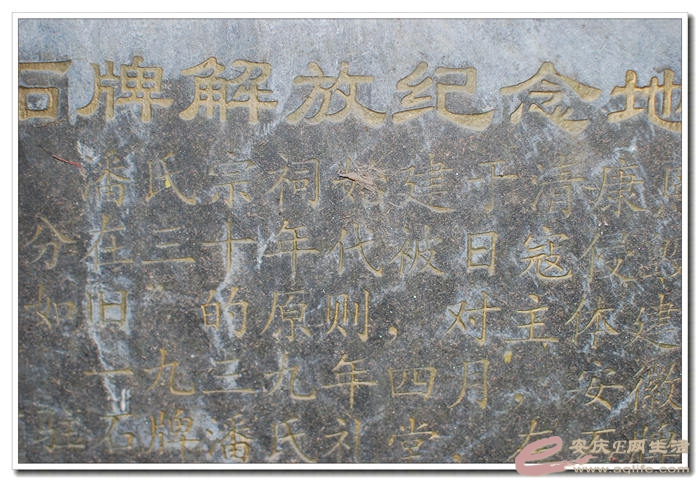 石牌解放纪念地
潘氏宗祠始建于清康
分在三十年代被日寇侵
如旧”的原则，对主体建
一九三九年四月，安徽
驻石牌潘氏礼堂，在
安庆E网生活
www.aqlife.com